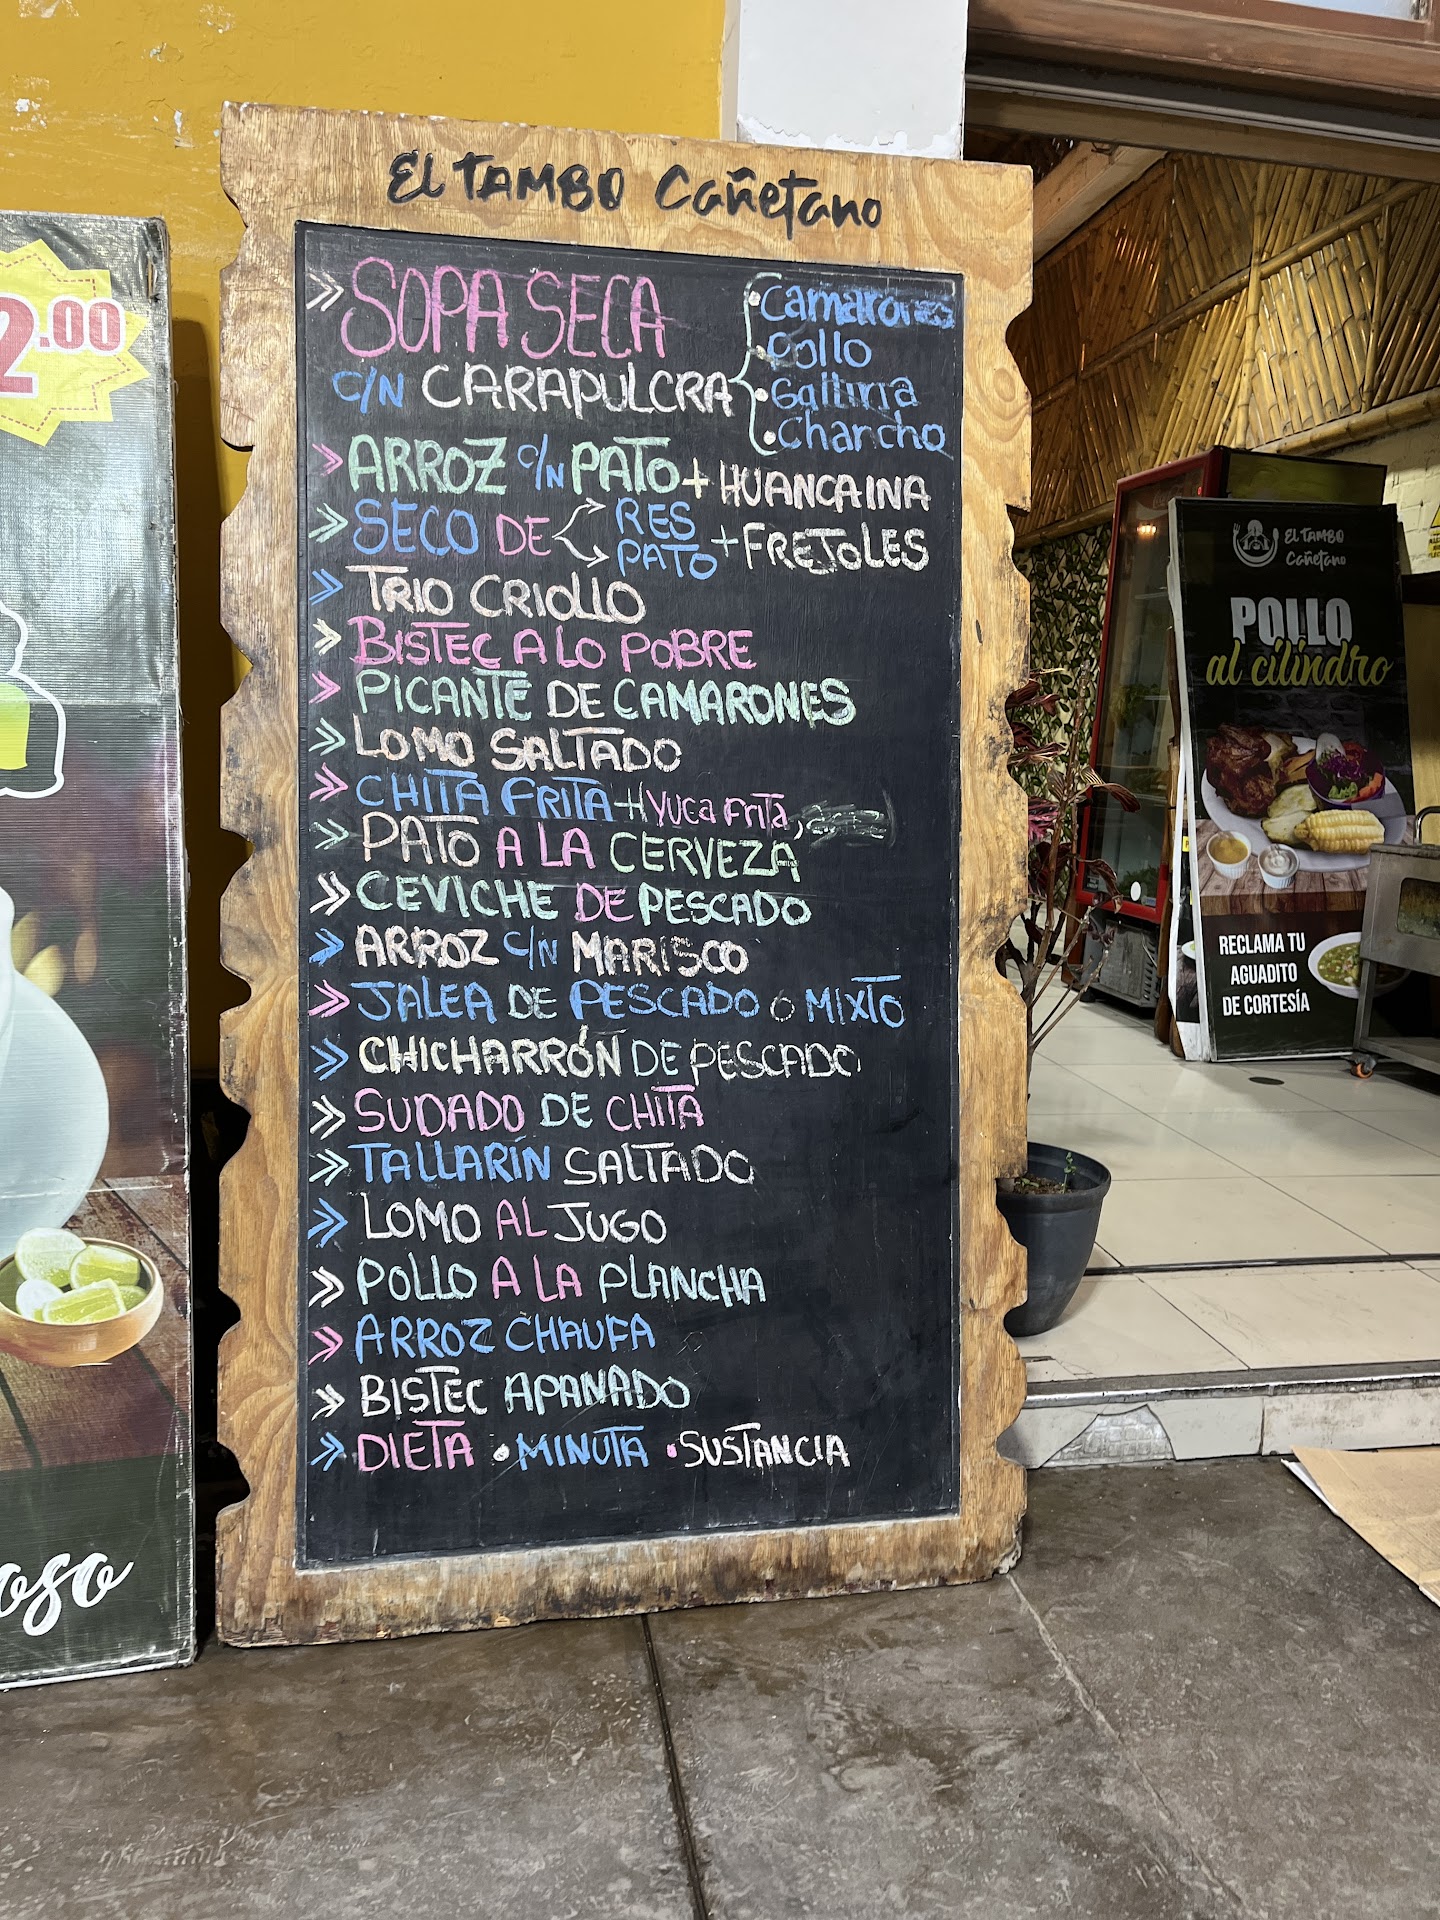 El TAMBO Cañetano
SOPA SECA
C/N CARAPULCRA
Camarones
Pollo
Gallina
Chancho
ARROZ C/N PATO + HUANCAINA
SECO DE RES PATO + FREJOLES
TRIO CRIOLLO
BISTEC A LO POBRE
PICANTE DE CAMARONES
LOMO SALTADO
CHITA FRITA + Yuca Frita,
PATO A LA CERVEZA
CEVICHE DE PESCADO
ARROZ C/N MARISCO
JALEA DE PESCADO O MIXTO
CHICHARRÓN DE PESCADO
SUDADO DE CHITA
TALLARÍN SALTADO
LOMO AL JUGO
POLLO A LA PLANCHA
ARROZ CHAUFA
BISTEC APANADO
DIETA • MINUTA • SUSTANCIA
2.00
oso
El TAMBO
Cañetano
POLLO
al cilindro
RECLAMA TU
AGUADITO
DE CORTESÍA